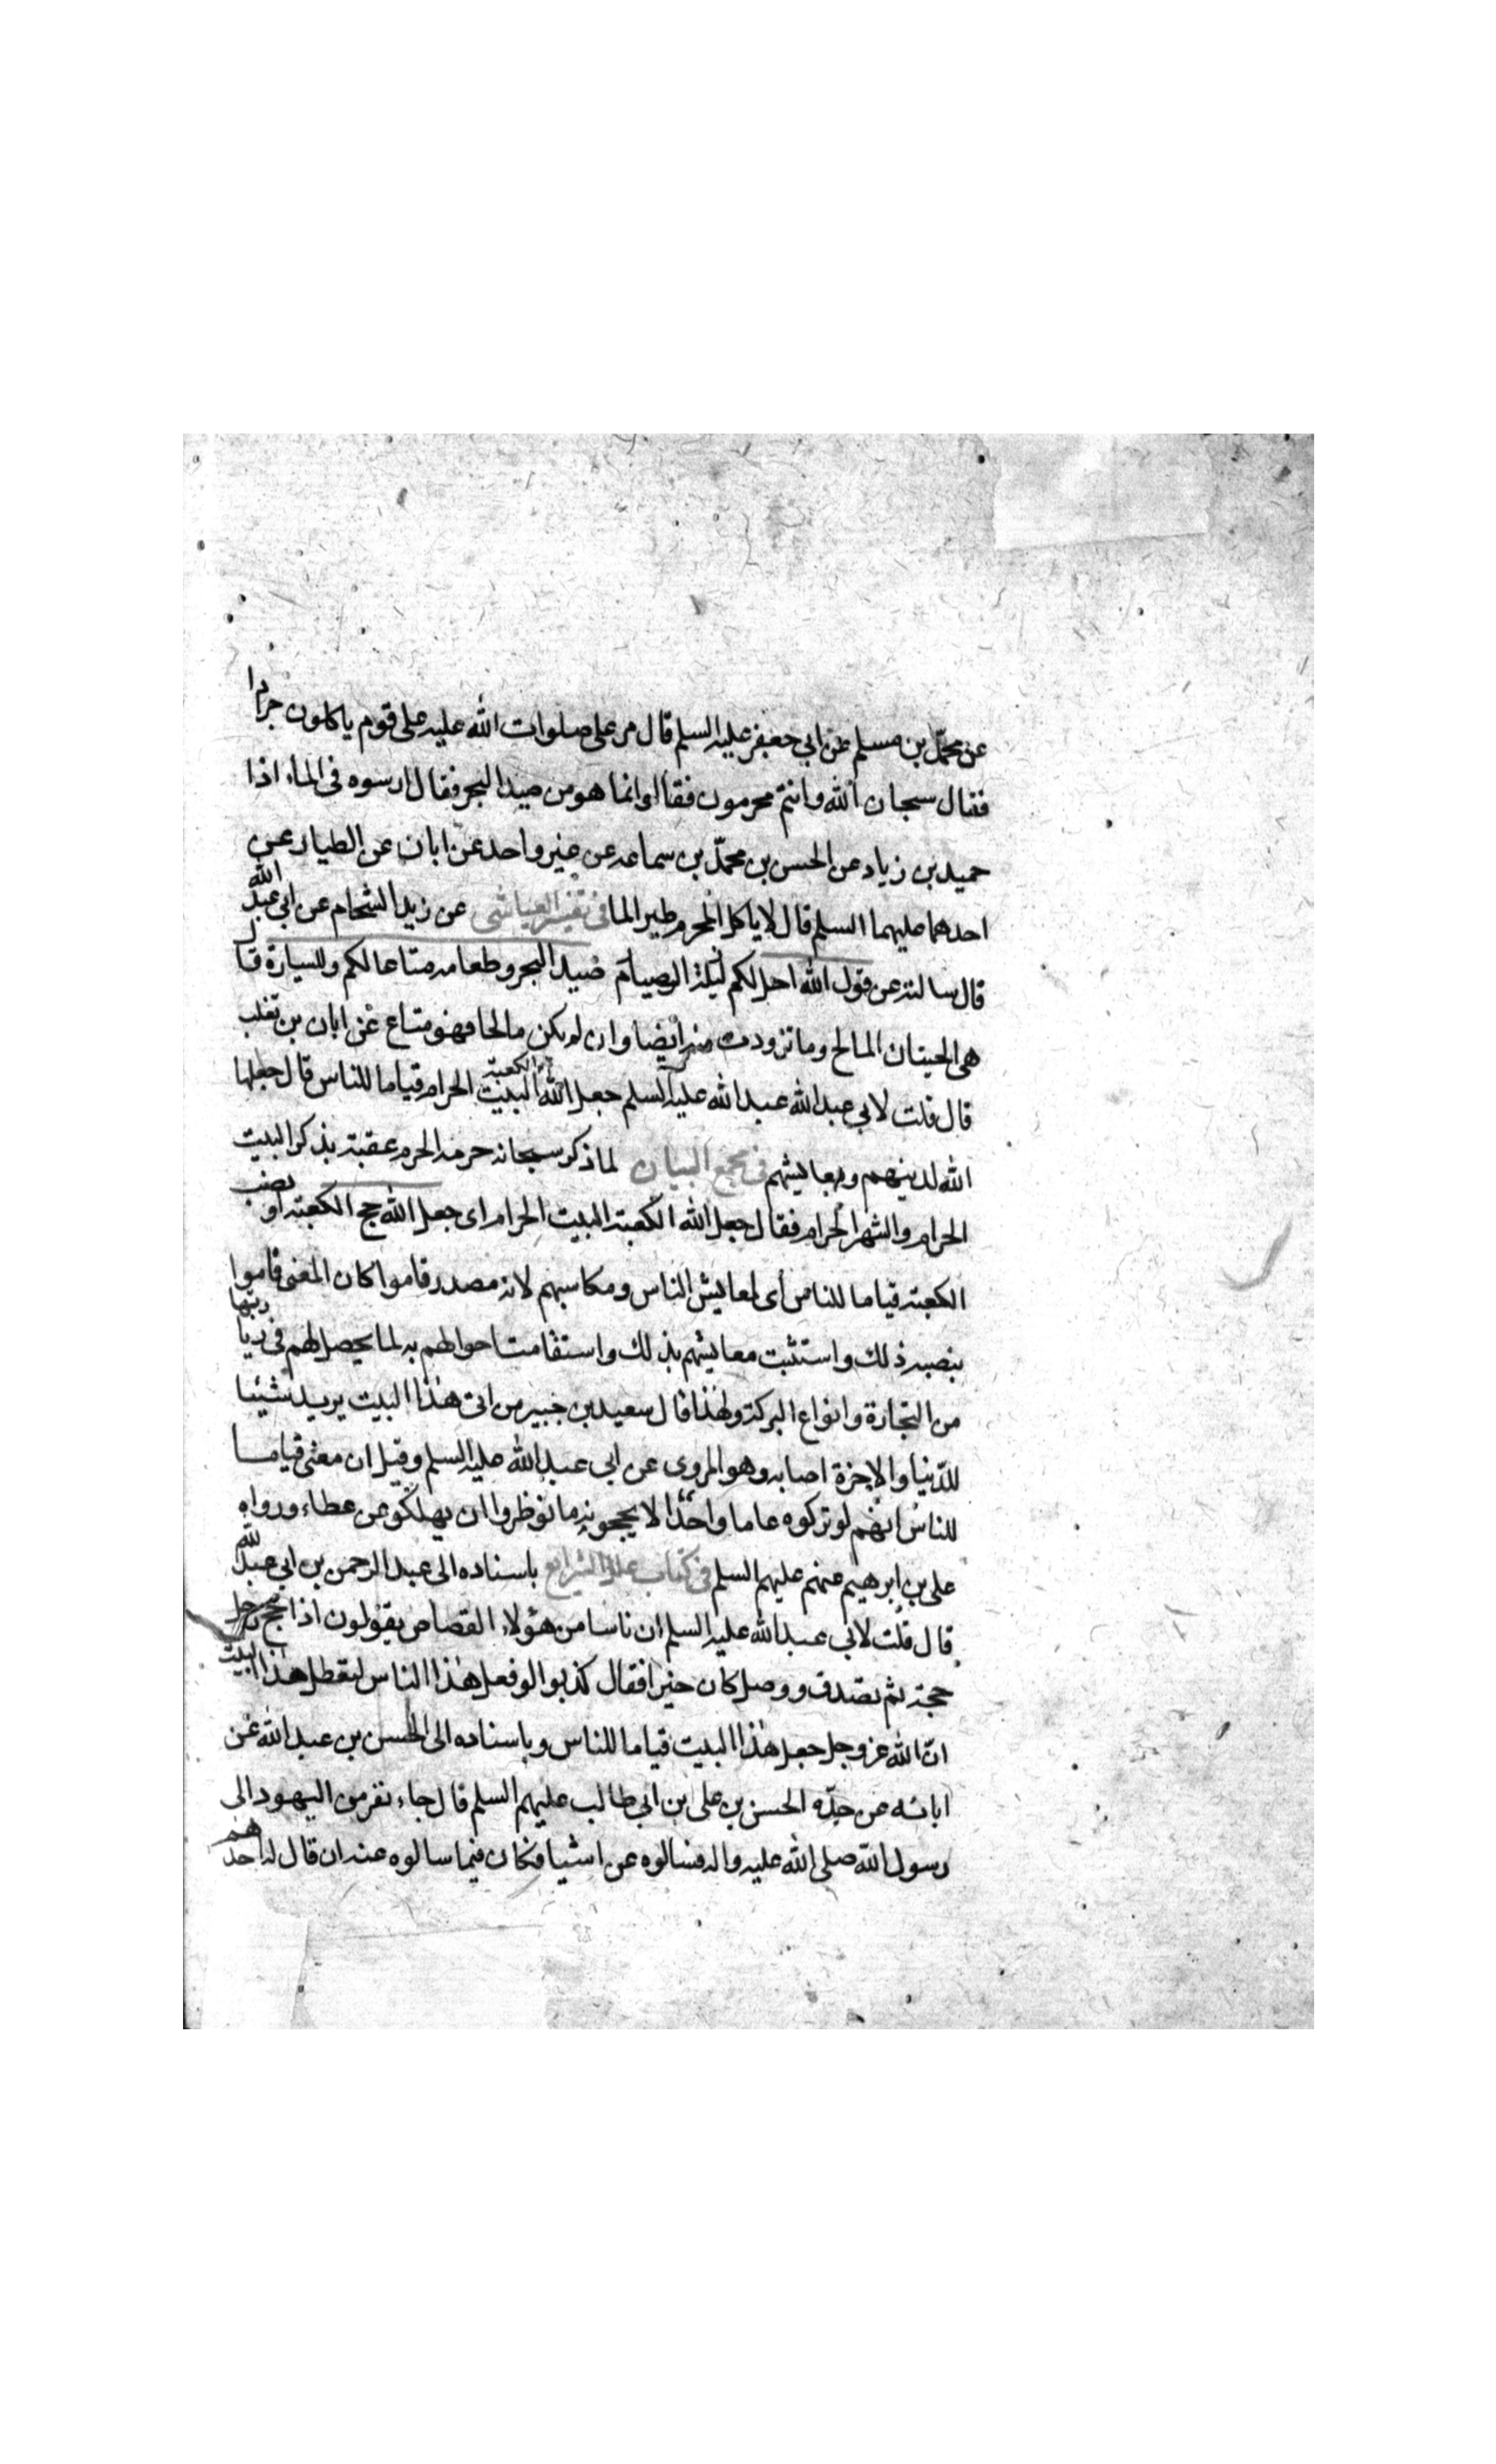 عن محمّد بن مسلم عن ابي جعفر عليه السلم قال مر على صلوات الله عليه على قوم ياكلون جرادا
فقال سبحان الله وانتم محرمون فقالوا انما هو من صيد البحر فقال ارسوه فى الماء اذا
حميد بن زياد عن الحسن بن محمّد بن سماعه عن غير واحد عن ابان عن الطيار عن
احدهما عليهما السلم قال لا ياكل المحرم طير الما فى تفسير العياشى عن زيد الشحام عن ابى عبد الله
قال سالته عن قول الله احل لكم ليلة الصيام صيد البحر وطعامه متاعا لكم وللسيارة قال
هى الحيتان المالح وما تزودت منه ايضا وان لم يكن مالحا فهو متاع عن ابان بن تغلب
قال قلت لابي عبد الله عبد الله عليه السلم جعل الله الكعبة البيت الحرام قياما للناس قال جعلها
الله لدينهم ومعايشهم فى مجمع البيان لما ذكر سبحانه حرمة الحرم عقبه بذكر البيت
الحرام والشهر الحرام فقال جعل الله الكعبة البيت الحرام اى جعل الله حج الكعبة او نصب
الكعبة قياما للناس أى لمعايش الناس ومكاسبهم لانه مصدر قاموا كان المعنى قاموا
بنصبه ذلك واستتبت معايشهم بذلك واستقامت احوالهم به لما يحصل لهم فى زيارتها
من التجارة وانواع البركة ولهذا قال سعيد بن جبير من اتى هذا البيت يريد شيئا
للدّنيا والاخرة اصابه وهو المروى عن ابى عبد الله عليه السلم وقيل ان معنى قياما
للناس انهم لو تركوه عاما واحدا لا يحجونه ما نوظروا ان يهلكو عن عطاء ورواه
على بن ابرهيم عنهم عليهم السلم فى كتاب علل الشرايع باسناده الى عبد الرحمن بن ابى عبد الله
قال قلت لابى عبد الله عليه السلم ان ناسا من هؤلاء القصاص يقولون اذا حج رجل
حجة ثم تصدق ووصل كان خيرا فقال كذبوا لو فعل هذا الناس لعطل هذا البيت
انّ الله عز وجل جعل هذا البيت قياما للناس وباسناده الى الحسن بن عبد الله عن
ابائه عن جدّه الحسن بن على بن ابى طالب عليهم السلم قال جاء نفر من اليهود الى
رسول الله صلى الله عليه واله فسالوه عن اشيا فكان فيما سالوه عنه ان قال له احدهم